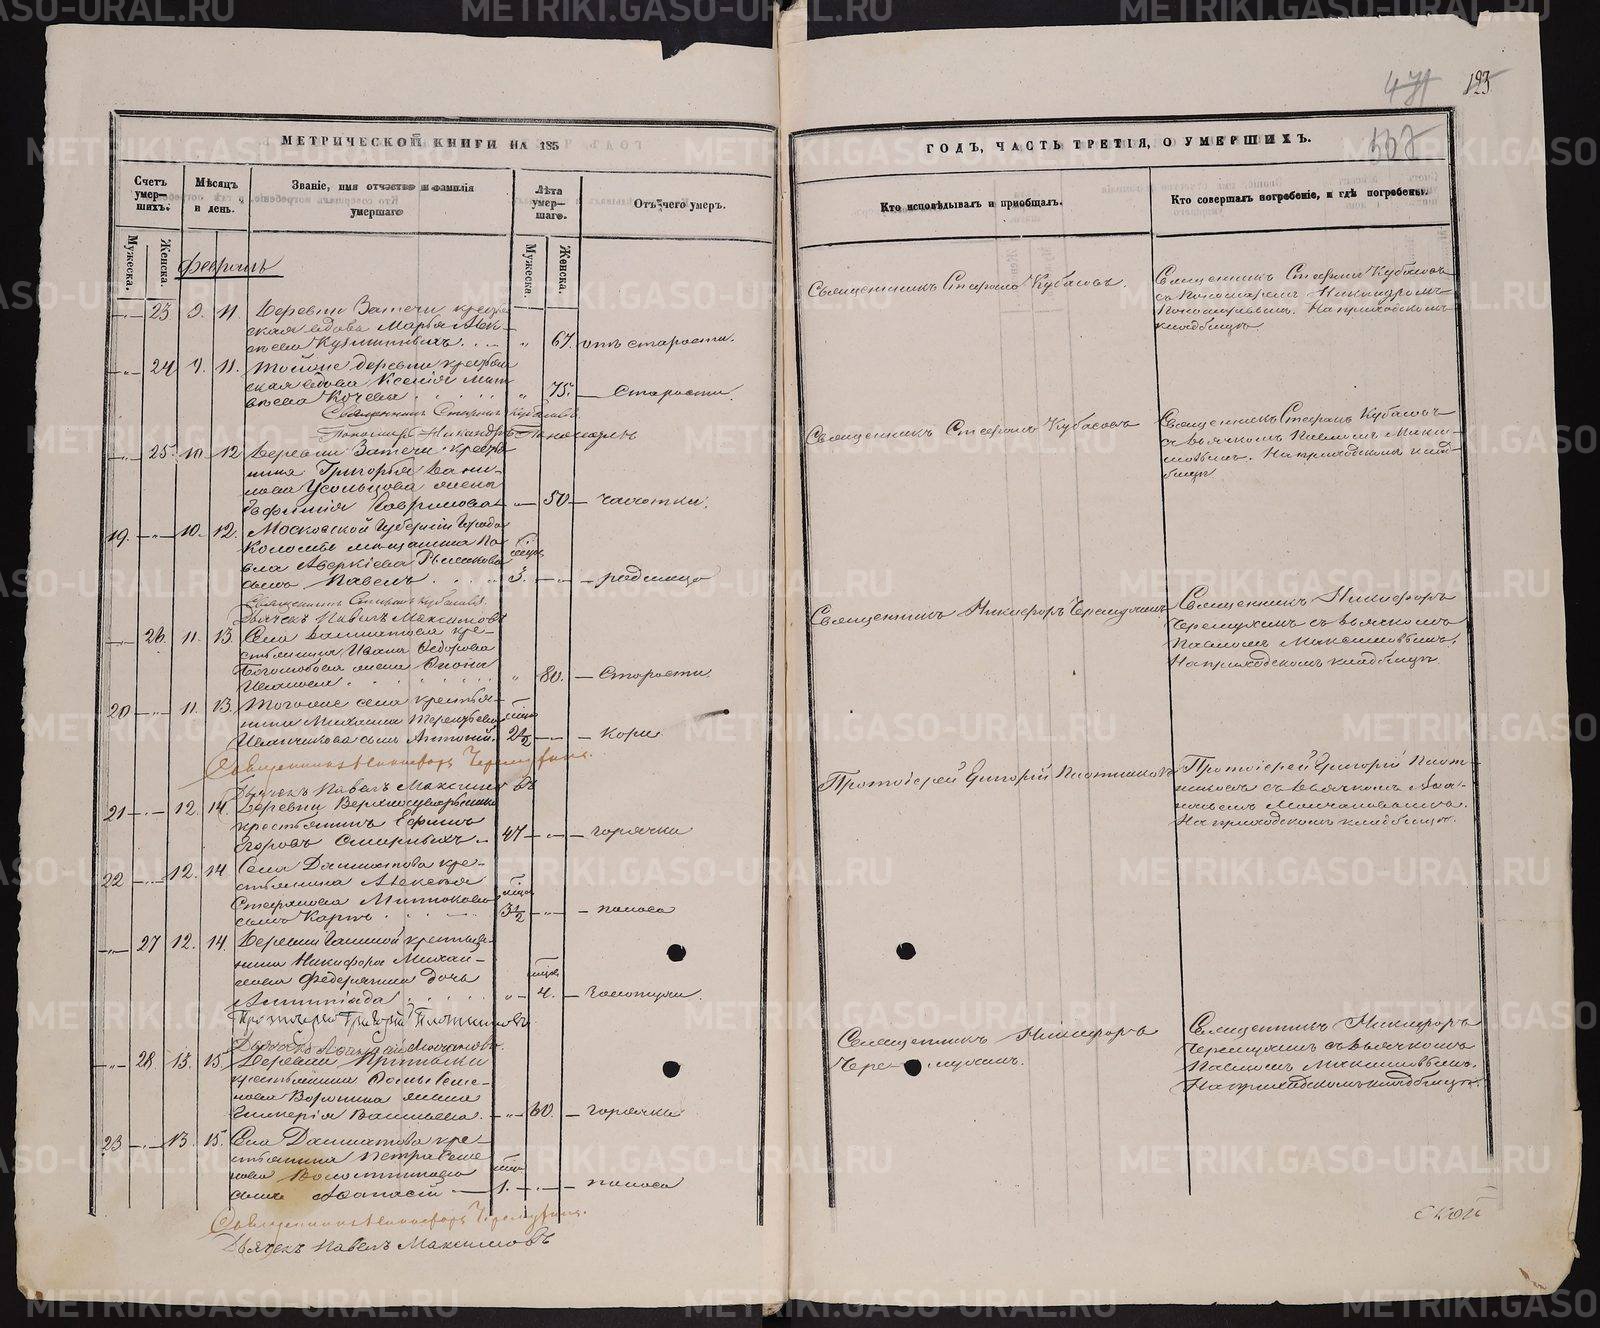 МЕТРИЧЕСКОЙ КНИГИ НА 185
Счетъ умер-шихъ.
Мѣсяцъ и день.
Званіе, имя отчество и фамилія умершаго
Лѣта умер-шаго.
Отъ чего умеръ.
Мужеска.
Женска.
Мужеска.
Женска.
Февраль
23 9. 11. Деревни Затечи кресть-
ская вдова Марья Алек-
67. отъ старости.
24 9. 11. Тойже деревни крестьян-
ская вдова Ксенія Мат-
вѣева Кочева 75. Старости.
Священникъ Стефанъ Кубасовъ
Пономарь Никандръ Пономаревъ
25. 10 12 Деревни Затечи кресть-
нина Григорья Дани-
лова Усольцова жена
Гаврилова 50 чахотки.
19. 10. 12. Московской Губерніи Города
Коломны мѣщанина Па-
вла Аверкіева
сынъ Павелъ 3. родимца
Священникъ Стефанъ Кубасовъ
Дьячекъ Павелъ Максимовъ
26. 11. 13. Села Далматова кре-
стьянина Ивана Федорова
жена
80. Старости.
20 11. 13. Тогоже села крестья-
нина Михаила Терентьева
сынъ Антоній. 2 1/2 Кори
Священникъ Никифоръ Черемухинъ.
Дьячекъ Павелъ Максимовъ
21 12. 14. Деревни
крестьянинъ Ефимъ
Егоровъ Смирныхъ 47 горячки
22 12. 14. Села Далматова кре-
стьянина Алексѣя
Стефанова
сынъ Карпъ 3 1/2 поноса
27 12. 14. Деревни крестья-
нина Никифора Михай-
лова дочь
4.
Протоіерей Григорій Плотниковъ
28. 13. 15. Деревни
крестьянина
Воронина жена
Гликерія Васильева. 60. горячки
23 13. 15. Села Далматова кре-
стьянина Петра Семе-
нова
сынъ Афанасій 1. поноса
Священникъ Никифоръ Черемухинъ.
Дьячекъ Павелъ Максимовъ
471 123
ГОДЪ, ЧАСТЬ ТРЕТІЯ, О УМЕРШИХЪ.
Кто исповѣдывалъ и пріобщалъ.
Кто совершалъ погребеніе, и гдѣ погребены.
Священникъ Стефанъ Кубасовъ.
Священникъ Стефанъ Кубасовъ
съ Пономаремъ Никандромъ
Пономаревымъ. На приходскомъ
кладбищѣ
Священникъ Стефанъ Кубасовъ
Священникъ Стефанъ Кубасовъ
съ дьячкомъ Павломъ Макси-
мовымъ. На приходскомъ клад-
бищѣ
Священникъ Никифоръ Черемухинъ
Священникъ Никифоръ
Черемухинъ съ дьячкомъ
Павломъ Максимовымъ.
На приходскомъ кладбищѣ.
Протоіерей Григорій Плотниковъ
Протоіерей Григорій Плот-
никовъ съ дьячкомъ Афа-
На приходскомъ кладбищѣ.
Священникъ Никифоръ
Черемухинъ.
Священникъ Никифоръ
Черемухинъ съ дьячкомъ
Павломъ Максимовымъ.
На приходскомъ кладбищѣ.
METRIKI.GASO-URAL.RU